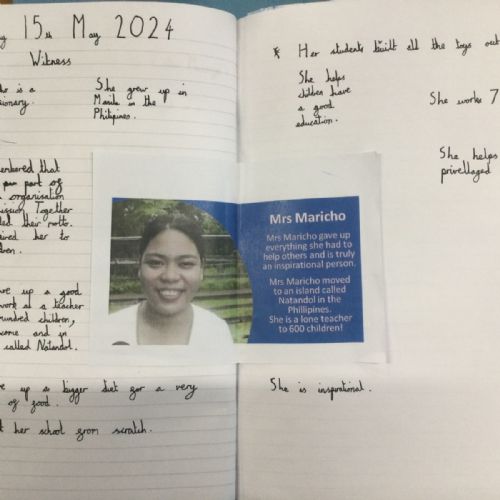 15th May 2024
Witness
is a
She grew up in
Manila in the
Philipines.
that
part of
organisation
Together
their motto.
her to
up a good
work as a teacher
hundred children,
and in
called Natandol.
up a bigger diet for a very
of food.
her school from scratch.
Mrs Maricho
Mrs Maricho gave up
everything she had to
help others and is truly
an inspirational person.
Mrs Maricho moved
to an island called
Natandol in the
Phillipines.
She is a lone teacher
to 600 children!
Her students built all the toys out
She helps
children have
a good
education.
She works 7
She helps
privellaged
She is inspirational.